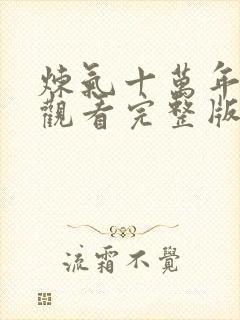 煉氣十萬年
觀看完整版
流霜不覺